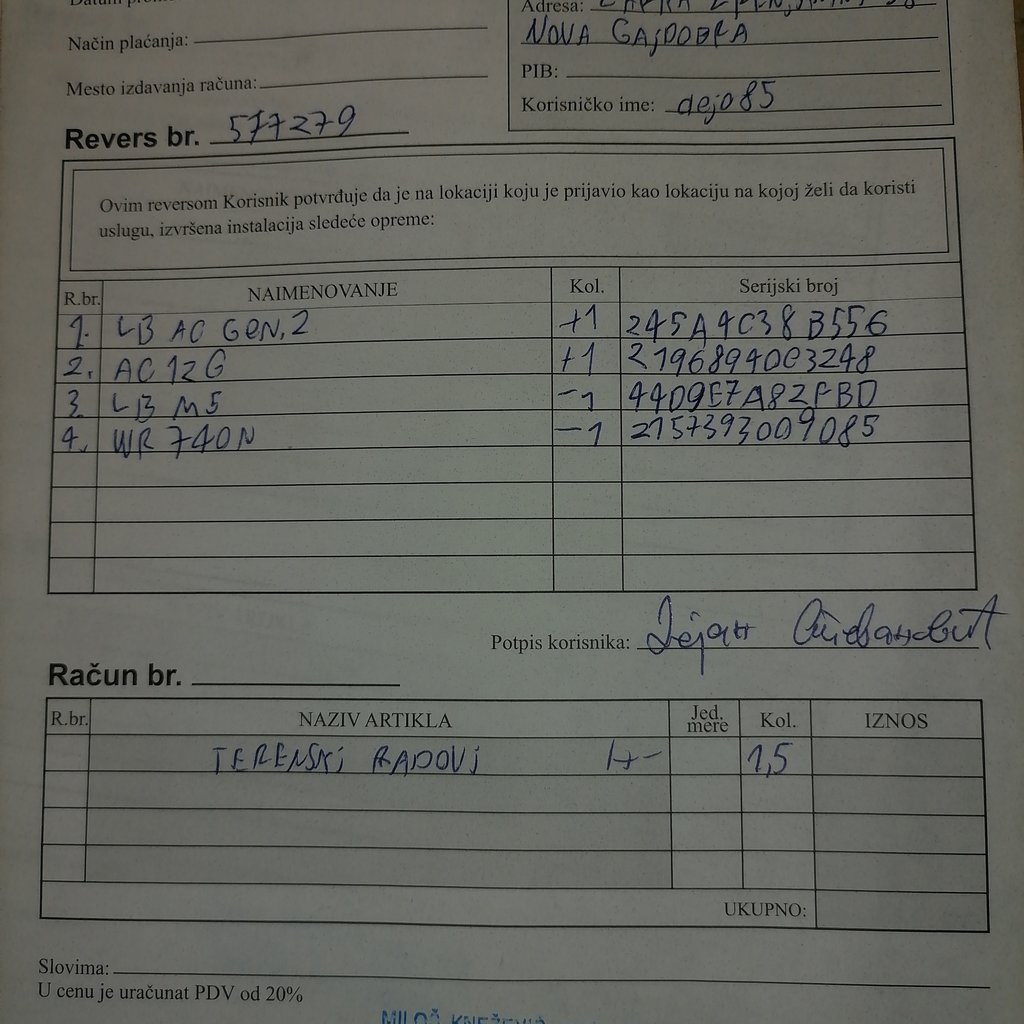 Adresa:
Način plaćanja:
NOVA GAJDOBRA
Mesto izdavanja računa:
PIB:
Korisničko ime: dejo85
Revers br. 577279
Ovim reversom Korisnik potvrđuje da je na lokaciji koju je prijavio kao lokaciju na kojoj želi da koristi
uslugu, izvršena instalacija sledeće opreme:
R.br. NAIMENOVANJE Kol. Serijski broj
1. LB AC GEN.2 +1 245A4C38B556
2. AC12G +1 2196894003248
3. LB M5 -1 44D9E7A82FBD
4. WR 740N -1 2157393009085
Potpis korisnika: Dejan
Račun br.
R.br. NAZIV ARTIKLA Jed. mere Kol. IZNOS
TERENSKI RADOVI H- 1,5
UKUPNO:
Slovima:
U cenu je uračunat PDV od 20%
MILOŠ KNEŽEVIĆ